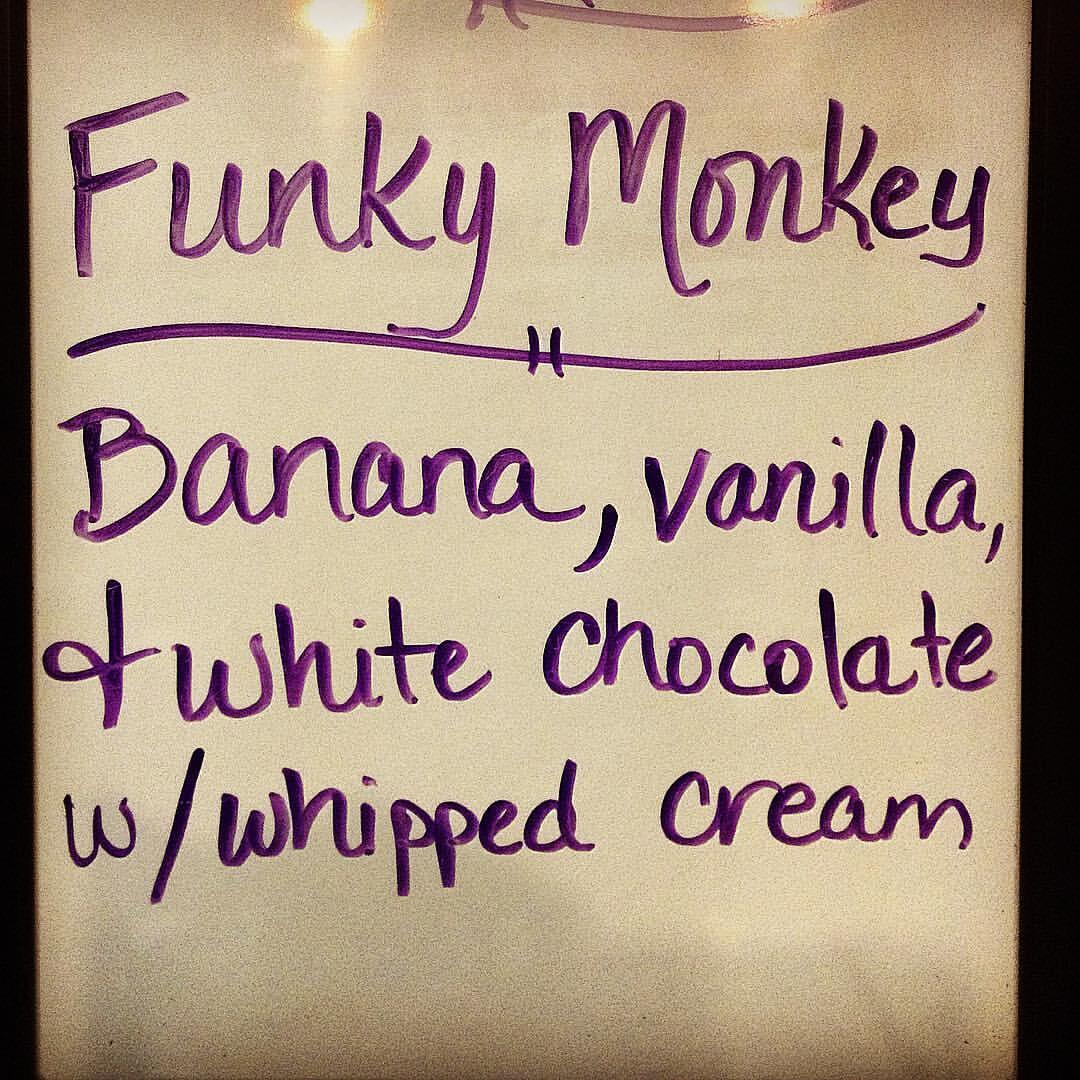 Funky Monkey
Banana, vanilla,
& white chocolate
w/whipped cream